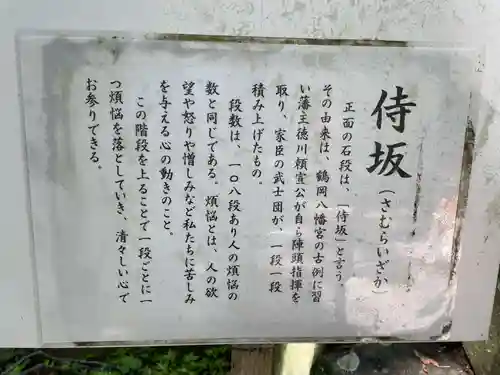 侍坂(さむらいざか)
正面の石段は、「侍坂」と言う。
その由来は、鶴岡八幡宮の古例に習
い藩主徳川頼宣公が自ら陣頭指揮を
取り、家臣の武士団が、一段一段
積み上げたもの。
段数は、一〇八段あり人の煩悩の
数と同じである。煩悩とは、人の欲
望や怒りや憎しみなど私たちに苦しみ
を与える心の動きのこと。
この階段を上ることで一段ごとに一
つ煩悩を落としていき、清々しい心で
お参りできる。